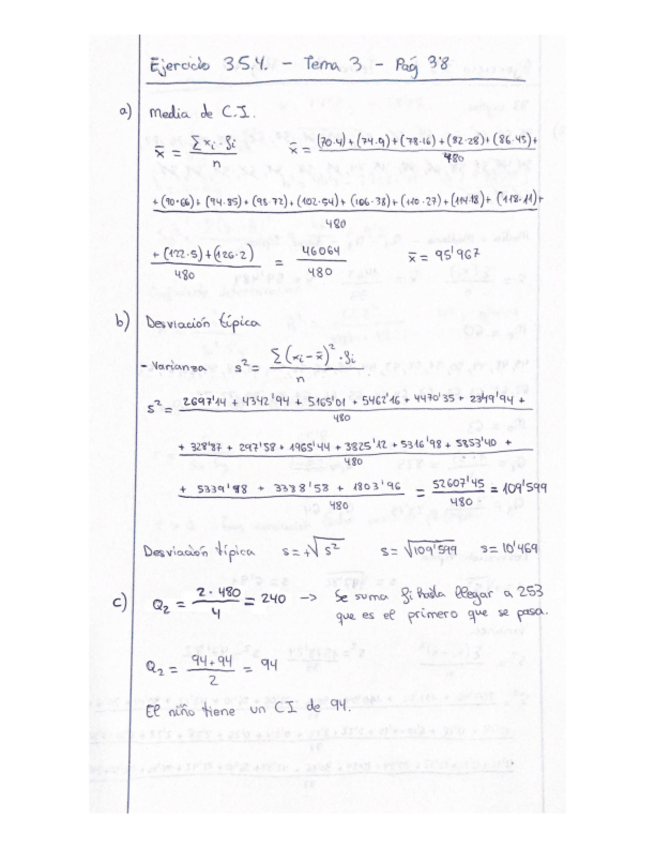 Ejercicio 3.5.4. - Tema 3 - Pág 98
a) Media de C.I.
x̄ = Σ xi · fi / n   x̄ = (70·4) + (74·9) + (78·16) + (82·28) + (86·45) + / 480
+ (90·66) + (94·85) + (98·72) + (102·54) + (106·38) + (110·27) + (114·18) + (118·11) + / 480
+ (122·5) + (126·2) / 480 = 46064 / 480   x̄ = 95'967
b) Desviación típica
- Varianza   s² = Σ (xi - x̄)² · fi / n
s² = 2697'14 + 4342'94 + 5165'01 + 5462'16 + 4470'35 + 2349'94 + / 480
+ 328'87 + 297'58 + 1965'44 + 3825'12 + 5316'98 + 5853'40 + / 480
+ 5339'98 + 3388'58 + 1803'96 / 480 = 52607'45 / 480 = 109'599
Desviación típica   s = +√s²   s = √109'599   s = 10'469
c) Q₂ = 2 · 480 / 4 = 240 -> Se suma fi hasta llegar a 253
que es el primero que se pasa.
Q₂ = 94 + 94 / 2 = 94
El niño tiene un CI de 94.